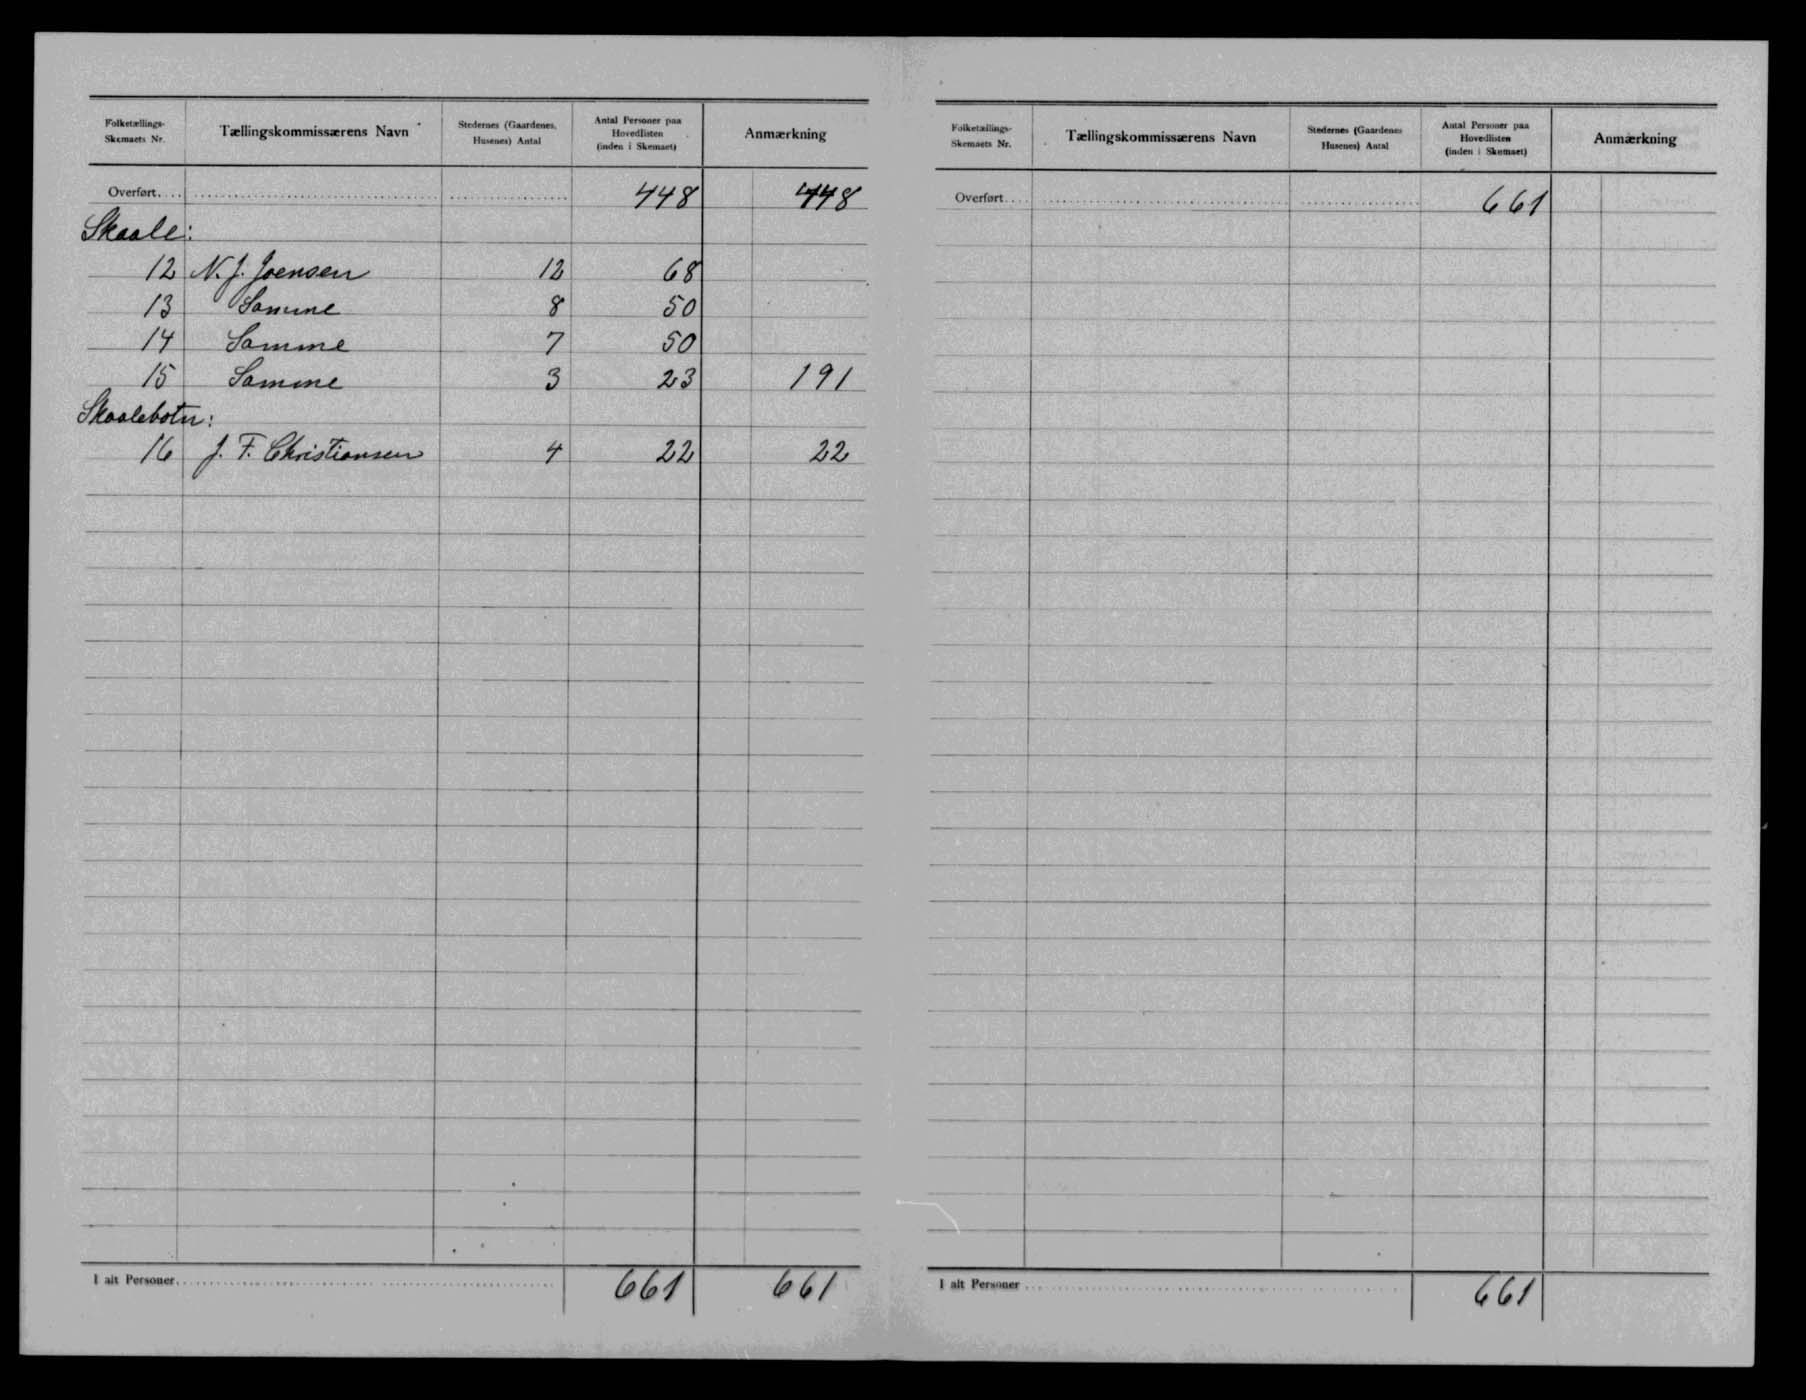 Folketællings-Skemaets Nr. Tællingskommissærens Navn Stedernes (Gaardenes, Husenes) Antal Antal Personer paa Hovedlisten (inden i Skemaet) Anmærkning
Overført.... 448 448
Skaale:
12 N. J. Joensen 12 68
13 Samme 8 50
14 Samme 7 50
15 Samme 3 23 191
Skaalebotn:
16 J. F. Christiansen 4 22 22
I alt Personer 661 661
Folketællings-Skemaets Nr. Tællingskommissærens Navn Stedernes (Gaardenes Husenes) Antal Antal Personer paa Hovedlisten (inden i Skemaet) Anmærkning
Overført.... 661
I alt Personer 661